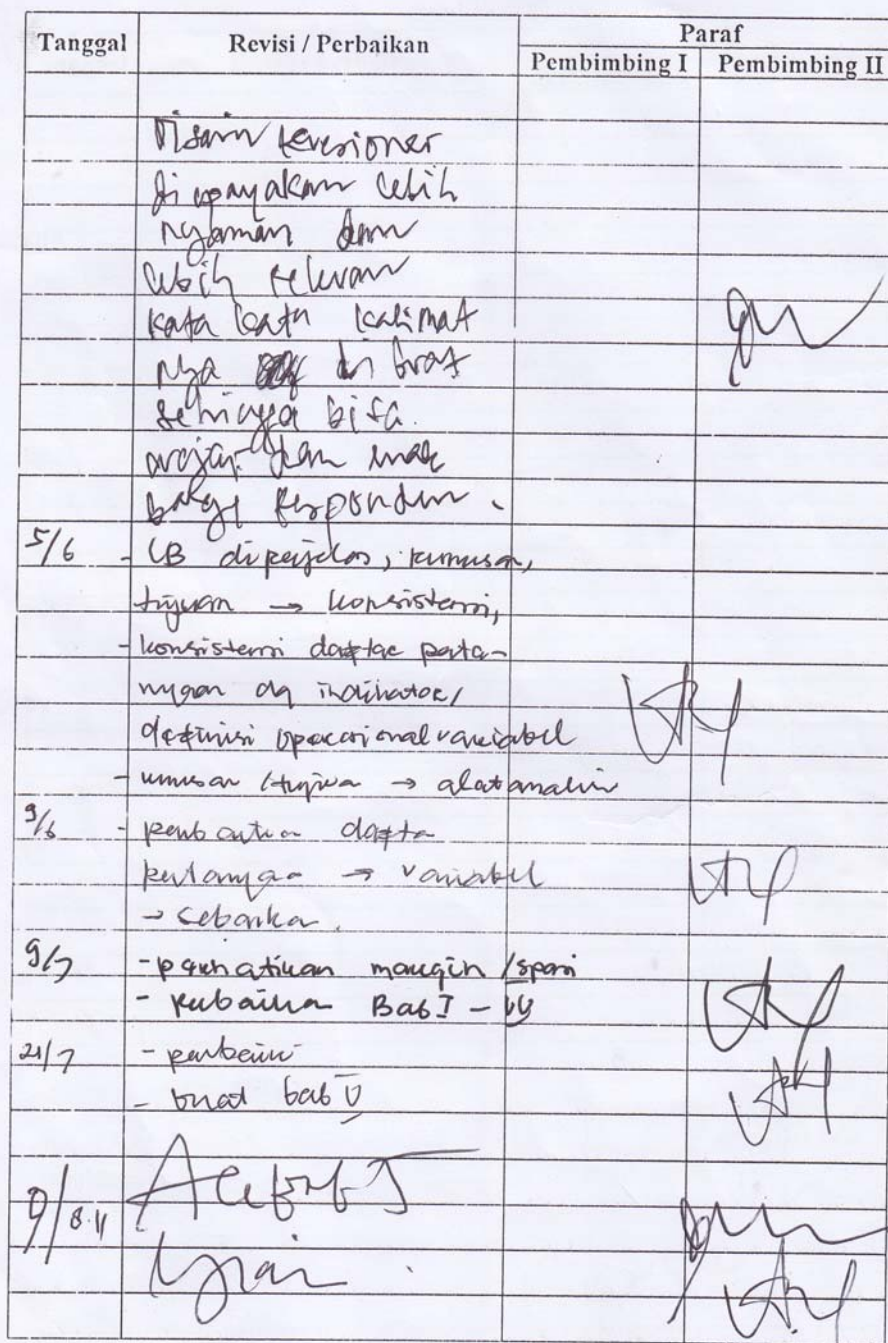 Tanggal Revisi / Perbaikan Paraf
Pembimbing I Pembimbing II
Disain kuesioner
diupayakan lebih
nyaman dan
lebih relevan
kata kata kalimat
nya di buat
sehingga bisa
wajar dan enak
bagi responden.
5/6 - LB diperjelas, rumusan,
tujuan → konsistensi,
- konsistensi daftar perta-
nyaan dg indikator/
definisi operasional variabel
- rumusan /tujuan → alat analisis
9/6 - daftar
pertanyaan → variabel
→ sebarkan
9/7 - perhatikan margin /spasi
- Perbaikan Bab I - IV
21/7 - perbaiki
- buat bab V
9/8.11
Ujian.